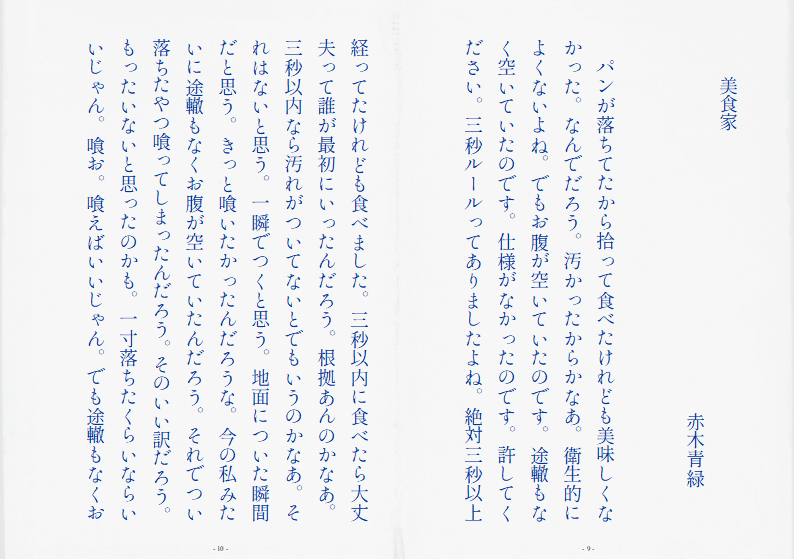 美食家
赤木青緑
　パンが落ちてたから拾って食べたけれども美味しくな
かった。なんでだろう。汚かったからかなあ。衛生的に
よくないよね。でもお腹が空いていたのです。途轍もな
く空いていたのです。仕様がなかったのです。許してく
ださい。三秒ルールってありましたよね。絶対三秒以上
- 9 -
経ってたけれども食べました。三秒以内に食べたら大丈
夫って誰が最初にいったんだろう。根拠あんのかなあ。
三秒以内なら汚れがついてないとでもいうのかなあ。そ
れはないと思う。一瞬でつくと思う。地面についた瞬間
だと思う。きっと喰いたかったんだろうな。今の私みた
いに途轍もなくお腹が空いていたんだろう。それでつい
落ちたやつ喰ってしまったんだろう。そのいい訳だろう。
もったいないと思ったのかも。一寸落ちたくらいならい
いじゃん。喰お。喰えばいいじゃん。でも途轍もなくお
- 10 -